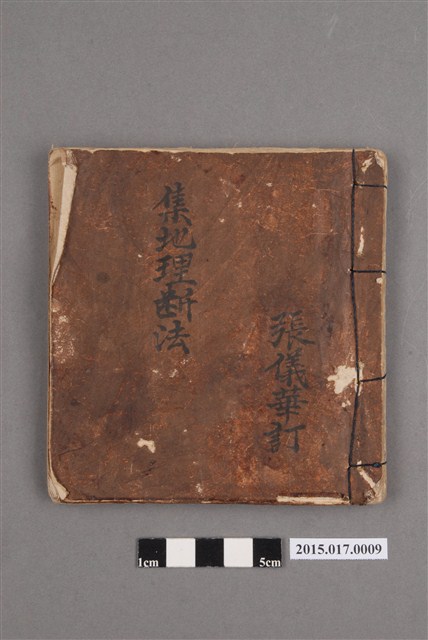 集地理斷法
張儀華訂
1cm
5cm
2015.017.0009